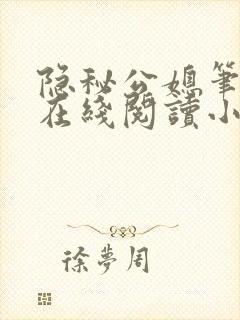 隐秘公媳筆
在綫閱讀小
徐夢周